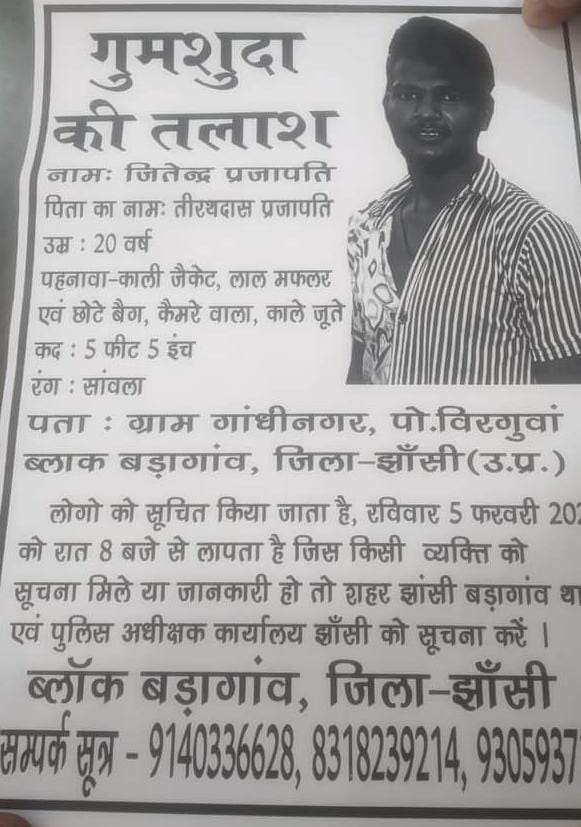 गुमशुदा
की तलाश
नामः जितेन्द्र प्रजापति
पिता का नामः तीरथदास प्रजापति
उम्र : 20 वर्ष
पहनावा-काली जैकेट, लाल मफलर
एवं छोटे बैग, कैमरे वाला, काले जूते
कद : 5 फीट 5 इंच
रंग : सांवला
पता : ग्राम गांधीनगर, पो.विरगुवां
ब्लाक बड़ागांव, जिला-झाँसी(उ.प्र.)
लोगो को सूचित किया जाता है, रविवार 5 फरवरी
को रात 8 बजे से लापता है जिस किसी व्यक्ति को
सूचना मिले या जानकारी हो तो शहर झांसी बड़ागांव
एवं पुलिस अधीक्षक कार्यालय झाँसी को सूचना करें ।
ब्लॉक बड़ागांव, जिला-झाँसी
सम्पर्क सूत्र - 9140336628, 8318239214,